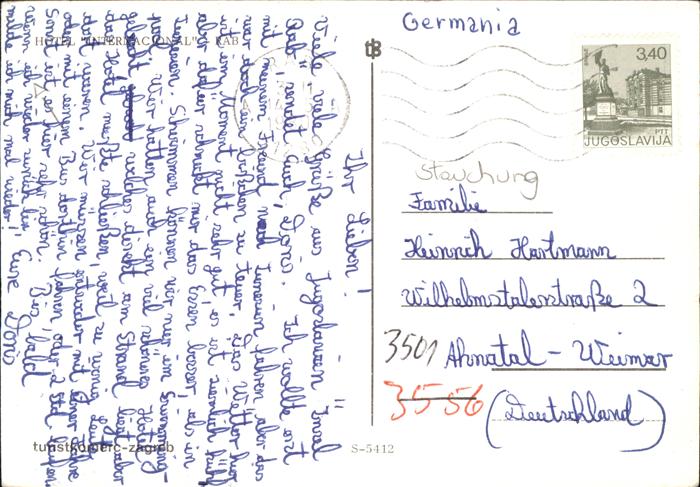 HOTEL "INTERNACIONAL" - RAB
Ihr Lieben!
Viele, viele Grüße aus Jugoslawien "Insel
Rab", sendet Euch, Doris. Ich wollte erst
mit meinem Freund nach Tunesien fahren, aber das
war doch ein bißchen zu teuer. Das Wetter hier
ist im Moment nicht sehr gut, es ist ziemlich kühl
aber dafür schmeckt mir das Essen besser als in
Tunesien. Schwimmen können wir nur im Swimming-
pool. Wir hatten auch ein viel schöneres Hotel
gebucht, welches direkt am Strand liegt, aber
das Hotel mußte schließen, weil zu wenig Leute
dort waren. Wir müssen entweder mit einer
oder mit einem Bus dorthin fahren, oder 2 Std. laufen.
Sonst ist es hier sehr schön. Bis bald
wenn ich wieder zurück bin
melde ich mich mal wieder! Eure Doris
turistkomerc-zagreb
S-5412
Germania
3,40
PTT
JUGOSLAVIJA
Stauchung
Familie
Heinrich Hartmann
Wilhelmstalerstraße 2
3501 Ahnatal - Weimar
3556
(Deutschland)